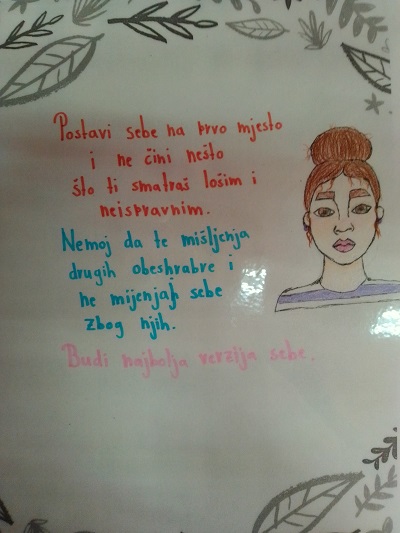 Postavi sebe na prvo mjesto
i ne čini nešto
što ti smatraš lošim i
neispravnim.
Nemoj da te mišljenja
drugih obeshrabre i
ne mijenjaj sebe
zbog njih.
Budi najbolja verzija sebe.